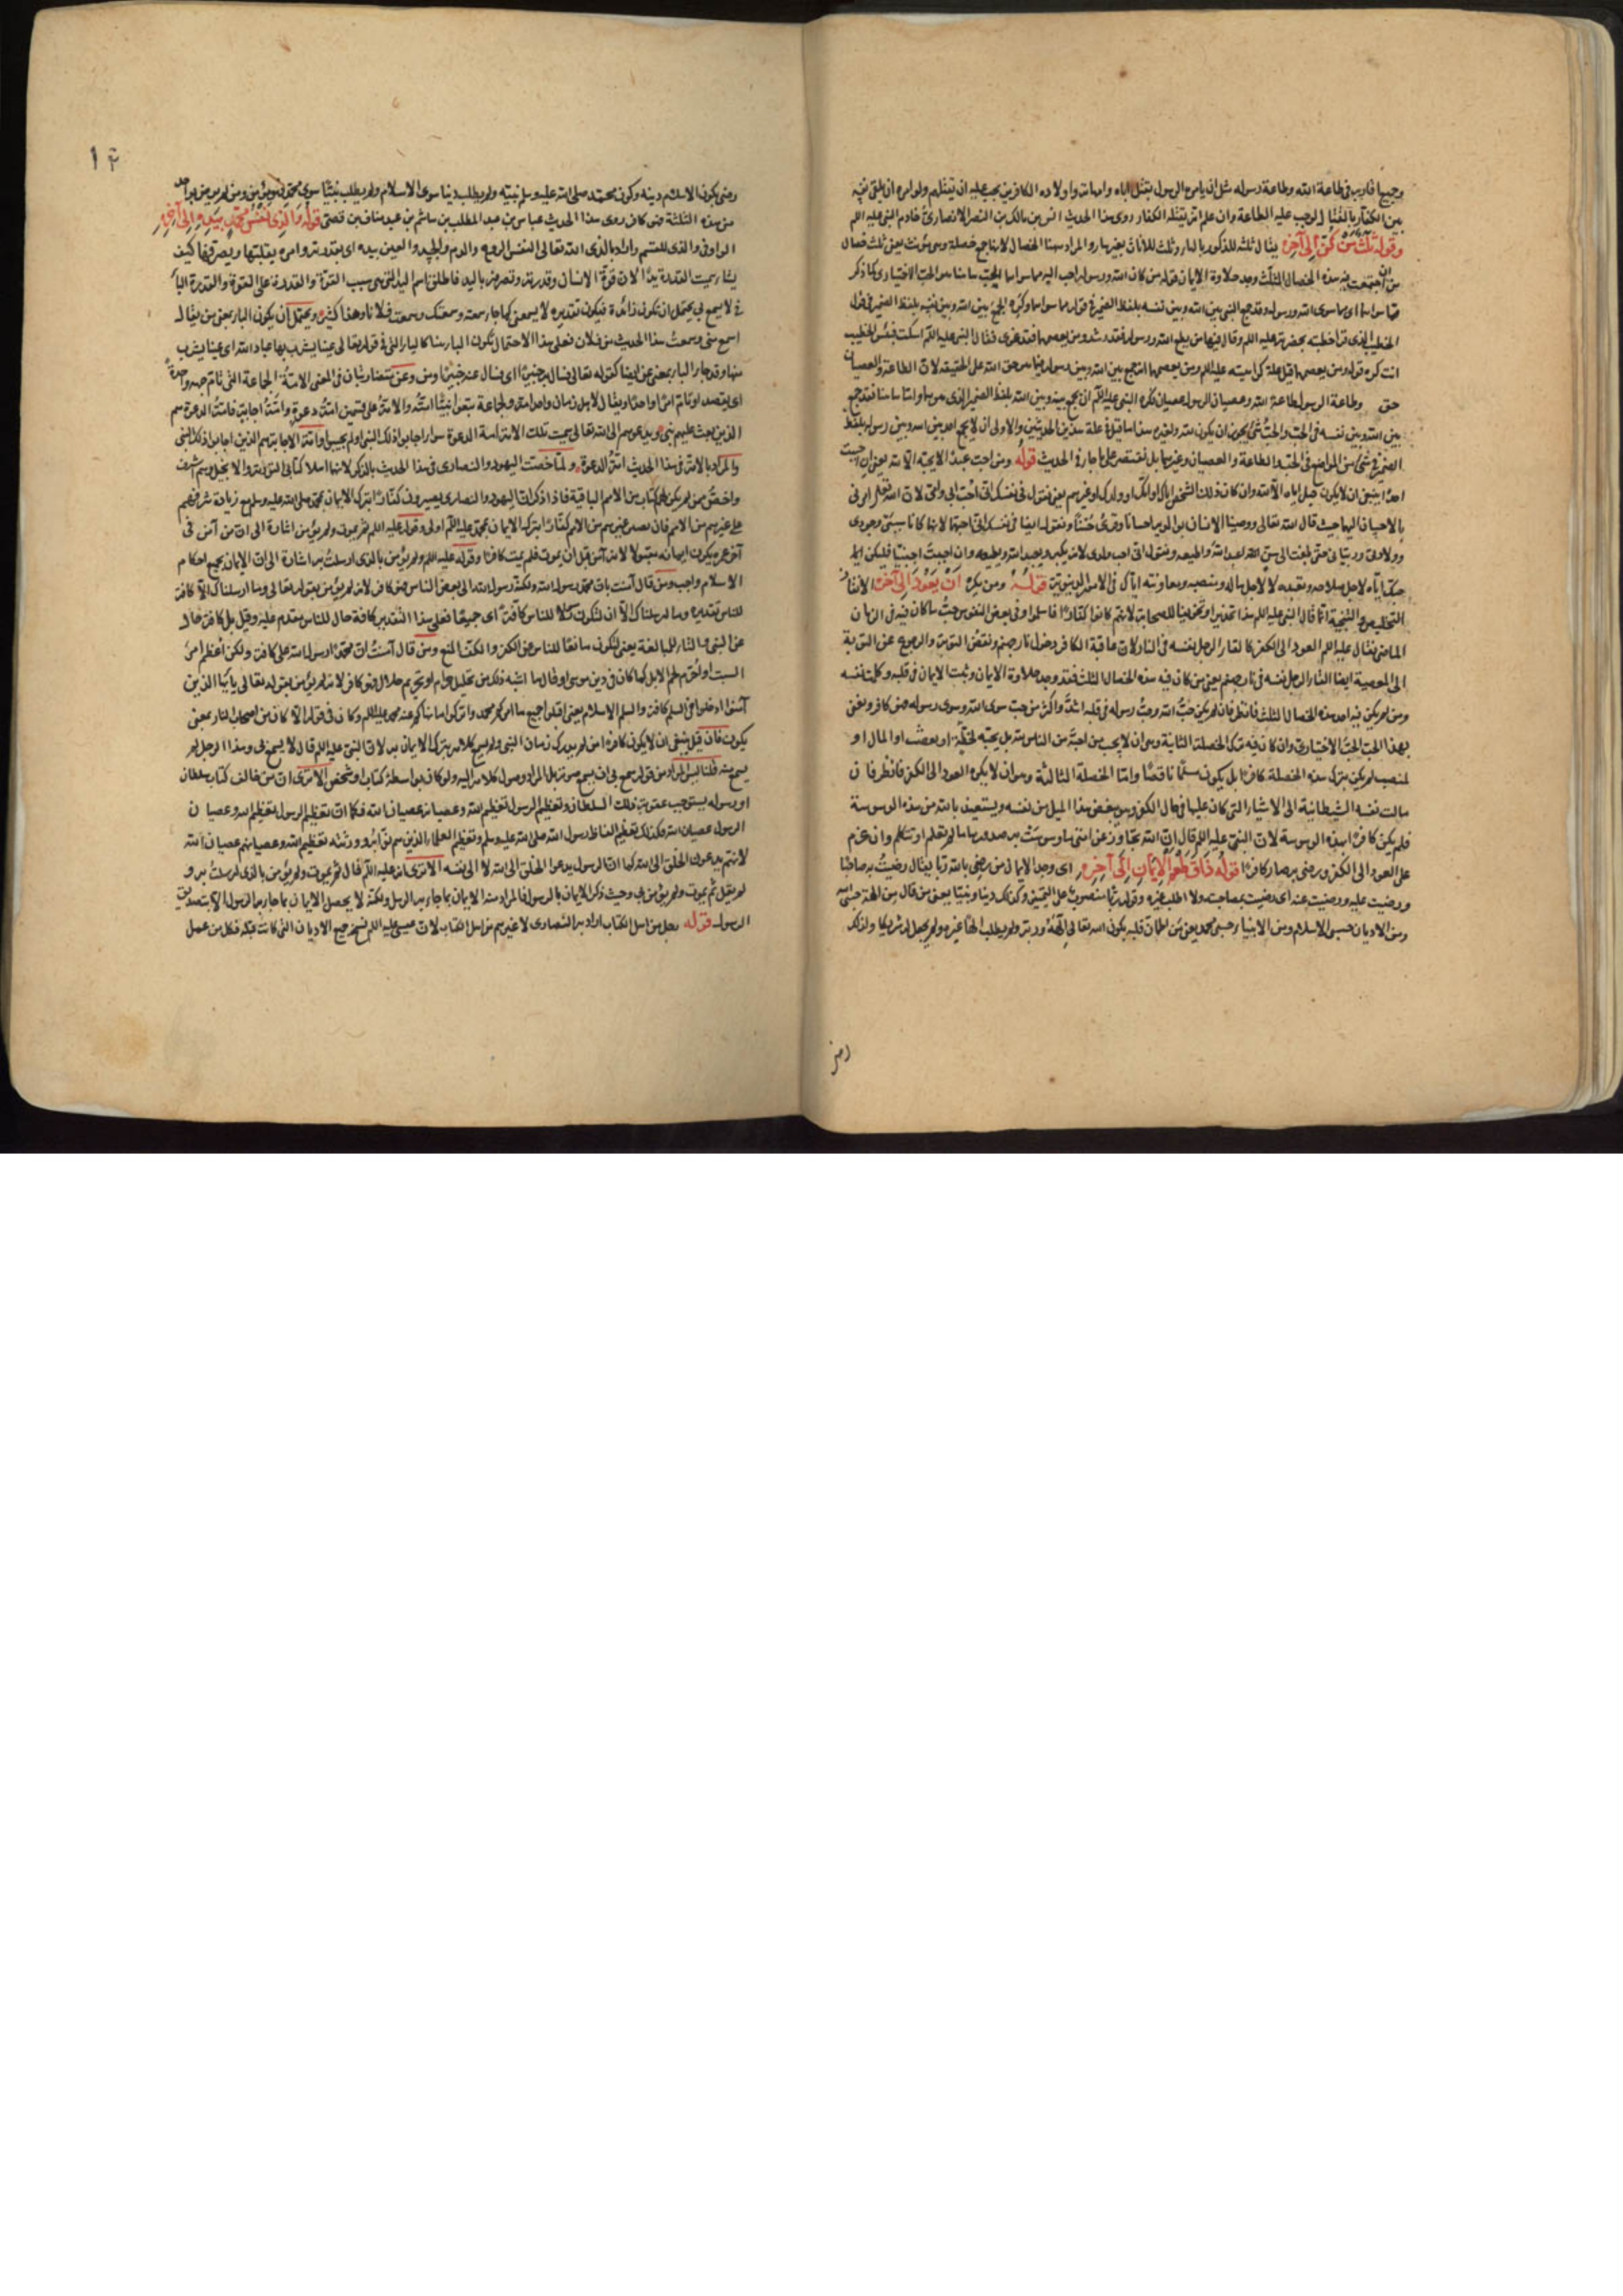 وجبها فارسى طاعة الله وطاعة رسوله مثل ان يامره الرسول بقتل اباه وامهاته واولاده الكافرين يجب عليه ان يقتلهم ولو امره ان يلقى نفسه
بين الكفار بالقتال لوجب عليه الطاعة وان علم انه يقتله الكفار روى هذا الحديث انس بن مالك بن النضر الانصارى خادم النبى عليه السلم
وقوله ثلث من كن الى آخره يقال ثلثة للذكور بالهاء وثلث للاناث بغير هاء والمراد ههنا الخصال لانها جمع خصلة وهى مؤنث يعنى ثلث خصال
من اجتمعت فيه هذه الخصال الثلث وجد حلاوة الايمان قوله من كان الله ورسوله احب اليه مما سواهما الحب ههنا هو الحب الاختيارى كما ذكر
مما سواهما اى مما سوى الله ورسوله وقد جمع النبى بين الله وبين نفسه بلفظ الضمير فى قوله مما سواهما وكره الجمع بين الله وبين نفسه بلفظ الضمير فى قول
الخطيب الذى قرأ خطبته بحضرته عليه السلم وقال فيها من يطع الله ورسوله فقد رشد ومن يعصهما فقد غوى فقال النبى عليه السلم اسكت فبئس الخطيب
انت كره قوله ومن يعصهما قيل علة كراهيته عليه السلم ومن يعصهما الجمع بين الله وبين رسوله فيما هو حق الله على الحقيقة لان الطاعة والعصيان
حق وطاعة الرسول طاعة الله وعصيان الرسول عصيان فكره النبى عليه السلم ان يجمع بينه وبين الله بلفظ الضمير الذى هو هما واما ههنا فقد جمع
بين الله وبين نفسه فى الحب والحب شئ يجوز ان يكون لله ولغيره هذا ما قيل فى علة هذين الحديثين والاولى ان لا يجمع احد بين الله وبين رسوله بلفظ
الضمير فى شئ من المواضع فى الحب والطاعة والعصيان وغيرها بل نقتصر على ما جاء فى الحديث قوله ومن احب عبدا لا يحبه الا لله يعنى ان احببت
احدا ينبغى ان لا يكون حبك اياه الا لله وان كان ذلك الشخص اباك او امك او ولدك او غيرهم يعنى تقول فى نفسك انى احب ابى وامى لان الله تعالى امرنى
بالاحسان اليهما حيث قال الله تعالى ووصينا الانسان بوالديه احسانا وقرئ حسنا وتقول ايضا فى نفسك انى احبهما لانهما كانا سببى وجودى
وولادتى وربيانى حتى بلغت الى سن اعبد الله واطيعه وتقول انى احب ولدى لانه يكبر ويعبد الله ويطيعه وان احببت اجنبيا فليكن
حبك اياه لاجل صلاحه وتعبده لا لاجل ماله ومنصبه ومعاونته اياك فى الامور الدنيوية قوله ومن يكره ان يعود الى آخره الانقاذ
التخليص والتنجية انما قال النبى عليه السلم هذا تحذيرا وتخويفا للصحابة لانهم كانوا كفارا فاسلموا وفى بعض النفوس حب ما كان فيه فى الزمان
الماضى فقال عليه السلم العود الى الكفر كالقاء الرجل نفسه فى النار لان عاقبة الكافر دخول نار جهنم ونقض التوبة والرجوع عن التوبة
الى المعصية ايضا القاء الرجل نفسه فى نار جهنم يعنى من كان فيه هذه الخصال الثلث فقد وجد حلاوة الايمان وثبت الايمان فى قلبه وكملت نفسه
ومن لم يكن فيه احد هذه الخصال الثلث فانظر فان لم يكن حب الله وحب رسوله فى قلبه اشد واكثر من حب سوى الله وسوى رسوله فهو كافر ونعنى
بهذا الحب الحب الاختيارى وان كان فيه ترك الخصلة الثانية وهو ان لا يحب من احبه من الناس لله بل يحبه لحظه او بعضه او المال او
لمنصب لم يكن بترك هذه الخصلة كافرا بل يكون مسلما ناقصا واما الخصلة الثالثة وهو ان لا يكره العود الى الكفر فانظر فان
مالت نفسه الشيطانية الى الاشياء التى كان عليها فى حال الكفر وهو يبغض هذا الميل من نفسه ويستعيذ بالله من هذه الوسوسة
فلم يكن كافرا بهذه الوسوسة لان النبى عليه السلم قال ان الله تجاوز عن امتى ما وسوست به صدورها ما لم تعلم او تتكلم وان عزم
على العود الى الكفر ورضى به صار كافرا قوله ذاق طعم الايمان الى آخره اى وجد الايمان من رضى بالله ربا يقال رضيت به صاحبا
ورضيت عليه ورضيت عنه اى رضيت بمصاحبته ولا اطلب غيره وقوله ربا منصوب على التمييز وكذلك دينا ونبيا يعنى من قال من الهة حسبى الله
ومن الاديان حسبى الاسلام ومن الانبياء حسبى محمد يعنى من اطمأن قلبه بكون الله تعالى الهه وربه ولم يطلب الها غيره ولم يجعل له شريكا وكذلك
رضى
رضى بكون الاسلام دينه وكون محمد صلى الله عليه وسلم نبيه ولم يطلب دينا سوى الاسلام ولم يطلب نبيا سوى محمد فهو مؤمن ومن لم يرض بواحد
من هذه الثلثة فهو كافر روى هذا الحديث عباس بن عبد المطلب بن هاشم بن عبد مناف بن قصى قوله والذى نفس محمد بيده الى آخره
الواو فى والذى للقسم واراد بالذى الله تعالى النفس الروح والدم والجسد والعين بيده اى بقدرته وامره يقلبها ويصرفها كيف
يشاء سميت القدرة يدا لان قوة الانسان وقدرته وتصرفه باليد فاطلق اسم اليد التى هى سبب القوة والقدرة على القوة والقدرة الباء
فى لا يسمع بى يحتمل ان تكون زائدة فيكون تقديره لا يسمعنى كما جاء سمعته وسمعتك وسمعت فلانا وهذا كثير ويحتمل ان يكون الباء بمعنى من يقال
اسمع منى وسمعت هذا الحديث من فلان فعلى هذا الاحتمال تكون الباء ههنا كالباء التى فى قوله تعالى عينا يشرب بها عباد الله اى عينا يشرب
منها وقد جاء الباء بمعنى عن ايضا كقوله تعالى فسأل به خبيرا اى فسأل عنه خبيرا ومن وعن متقاربان فى المعنى الامة الجماعة التى تأم جهة واحدة
اى يقصد او تأم امرا واحدا ويقال لاهل زمان واحد امة ولجماعة يتبعون نبيا امة والامة على قسمين امة دعوة وامة اجابة فامة الدعوة هم
الذين بعث عليهم نبى ويدعوهم الى الله تعالى سميت تلك الامة امة الدعوة سواء اجابوا ذلك النبى او لم يجيبوا وامة الاجابة هم الذين اجابوا ذلك النبى
والمراد بالامة فى هذا الحديث امة الدعوة ولما خصت اليهود والنصارى فى هذا الحديث بالذكر لانهما اهلا كتابى التورية والانجيل وهم اشرف
واخص ممن لم يكن له كتاب من الامم الباقية فاذا ذكر ان اليهود والنصارى يصيرون كفارا بترك الايمان بمحمد صلى الله عليه وسلم مع زيادة شرفهم
على غيرهم من الامم فان يصير غيرهم من الامم كفارا بترك الايمان بمحمد عليه السلم اولى وقوله عليه السلم ثم يموت ولم يؤمن اشارة الى ان من آمن فى
آخر عمره يكون ايمانه مقبولا لانه آمن قبل ان يموت فلم يمت كافرا وقوله عليه السلم ولم يؤمن بالذى ارسلت به اشارة الى ان الايمان بجميع احكام
الاسلام واجب ومن قال آمنت بان محمدا رسول الله ولكنه رسول الله الى بعض الناس فهو كافر لانه لم يؤمن بقوله تعالى وما ارسلناك الا كافة
للناس تقديره وما ارسلناك الا ان لتكون رسلا للناس كافة اى جميعا فعلى هذا التقدير كافة حال للناس مقدم عليه وقيل بل كافة حال
عن النبى والتاء للمبالغة يعنى لتكون مانعا للناس عن الكفر والكف المنع ومن قال آمنت ان محمدا رسول الله على كافة ولكن اعظم امر
السبت او احرم لحم الابل كما كان فى دين موسى او قال ما اشبه ذلك من تحليل حرام او تحريم حلال فهو كافر لانه لم يؤمن بقوله تعالى يا ايها الذين
آمنوا ادخلوا فى السلم كافة والسلم الاسلام يعنى اقبلوا جميع ما امركم محمد واتركوا ما نهاكم عنه محمد عليه السلم وكان فى قوله الا كان من اصحاب النار بمعنى
يكون فان قيل ينبغى ان لا يكون كافرا من لم يدرك زمان النبى ولم يسمع كلامه بترك الايمان به لان النبى عليه السلم قال لا يسمع بى وهذا الرجل لم
يسمع منه قلنا ليس المراد من قوله يسمع بى ان يسمع منه بل المراد وصول كلامه اليه ولو كان بواسطة كتاب او شخص الا ترى ان من خالف كتاب سلطان
او رسوله يستوجب عقوبة ذلك السلطان وتعظيم الرسول تعظيم الله وعصيانه عصيان الله فكما ان تعظيم الرسول تعظيم الله وعصيان
الرسول عصيان الله فكذلك تعظيم الفاظ رسول الله صلى الله عليه وسلم وتعظيم العلماء الذين هم نوابه وورثته تعظيم الله وعصيانهم عصيان الله
لانهم يدعون الخلق الى الله كما ان الرسول يدعو الخلق الى الله لا الى نفسه الا ترى انه عليه السلم قال ثم يموت ولم يؤمن بالذى ارسلت به و
لم يقل ثم يموت ولم يؤمن بى وحيث ذكر الايمان بالرسول فالمراد منه الايمان بما جاء به الرسول ولكنه لا يحصل الايمان بما جاء به الرسول الا بتصديق
الرسول قوله رجل من اهل الكتاب اراد به النصارى لا غيرهم من اهل الكتاب لان عيسى عليه السلم نسخ جميع الاديان التى كانت قبله فكل من عمل